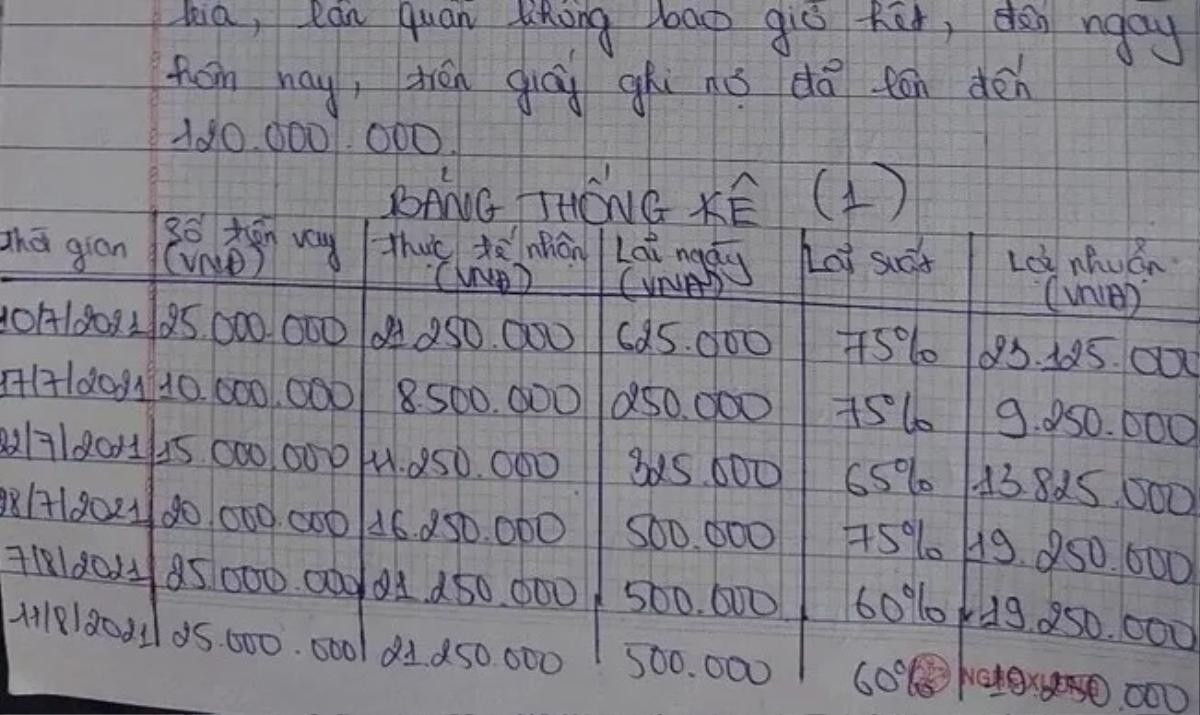 kia, lẩn quẩn không bao giờ hết, đến ngay
hôm nay, trên giấy ghi nợ đã lên đến
120.000.000.
BẢNG THỐNG KÊ (1)
Thời gian Số tiền vay (VNĐ) Thực tế nhận (VNĐ) Lãi ngày (VNĐ) Lãi suất Lợi nhuận (VNĐ)
10/7/2021 25.000.000 21.250.000 625.000 75% 23.125.000
17/7/2021 10.000.000 8.500.000 250.000 75% 9.250.000
22/7/2021 15.000.000 11.250.000 325.000 65% 13.825.000
28/7/2021 20.000.000 16.250.000 500.000 75% 19.250.000
7/8/2021 25.000.000 21.250.000 500.000 60% 19.250.000
11/8/2021 25.000.000 21.250.000 500.000 60% 19.250.000